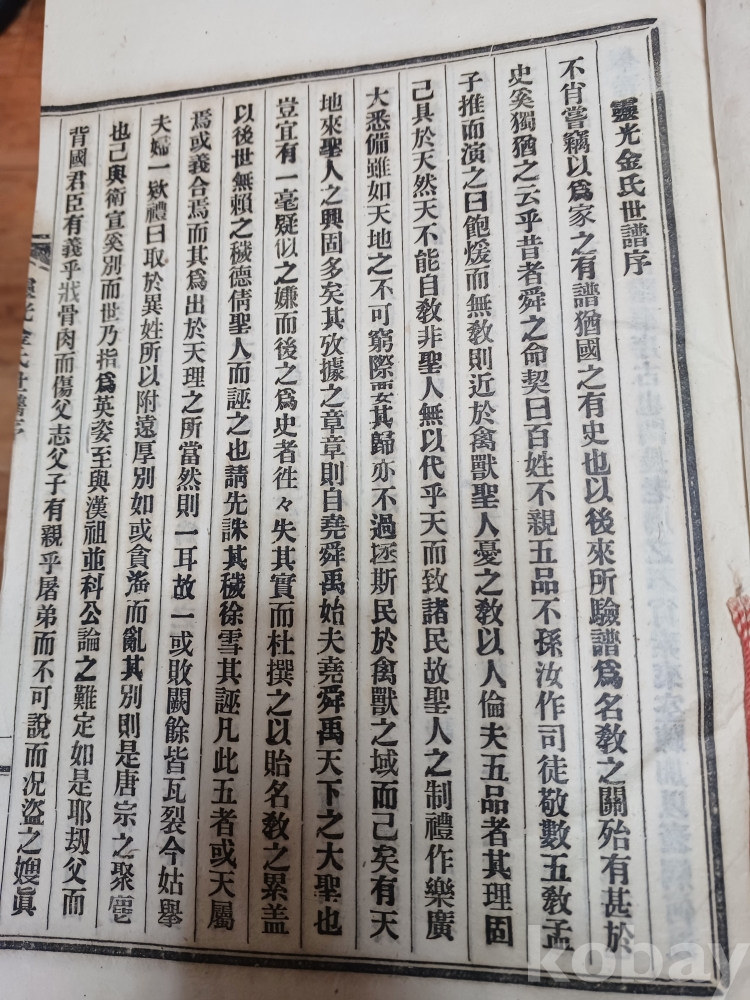 靈光金氏世譜序
不肖嘗竊以爲家之有譜猶國之有史也以後來所驗譜爲名敎之關殆有甚於
史奚獨猶之云乎昔者舜之命契曰百姓不親五品不孫汝作司徒敬敷五敎孟
子推而演之曰飽煖而無敎則近於禽獸聖人憂之敎以人倫夫五品者其理固
已具於天然天不能自敎非聖人無以代乎天而致諸民故聖人之制禮作樂廣
大悉備雖如天地之不可窮際要其歸亦不過拯斯民於禽獸之域而已矣有天
地來聖人之興固多矣其攷據之章章則自堯舜禹始夫堯舜禹天下之大聖也
豈宜有一毫疑似之嫌而後之爲史者徃々失其實而杜撰之以貽名敎之累盖
以後世無賴之穢德倩聖人而誣之也請先誅其穢徐雪其誣凡此五者或天屬
焉或義合焉而其爲出於天理之所當然則一耳故一或敗闕餘皆瓦裂今姑擧
夫婦一欵禮曰取於異姓所以附遠厚別如或貪滛而亂其別則是唐宗之聚麀
也已與衛宣奚別而世乃指爲英姿至與漢祖並科公論之難定如是耶刼父而
背國君臣有義乎戕骨肉而傷父志父子有親乎屠弟而不可說而况盜之嫂眞
光金氏世譜序
kobay